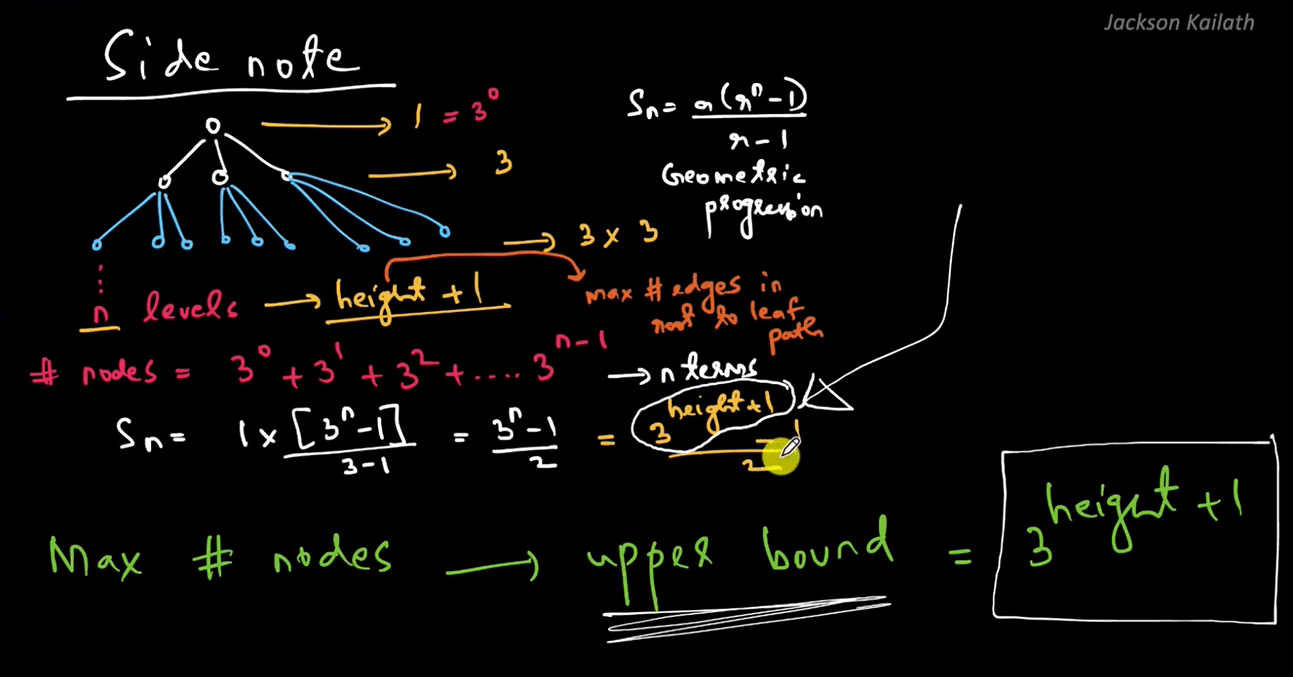 Jackson Kailath
Side note
1 = 3^0
3
3 x 3
Sn = a(r^n - 1) / r - 1
Geometric
progression
n levels → height + 1
max # edges in
root to leaf
path
# nodes = 3^0 + 3^1 + 3^2 + .... 3^(n-1) → n terms
Sn = 1 x [3^n - 1] / 3-1 = 3^n - 1 / 2 = 3^(height+1) - 1 / 2
Max # nodes → upper bound = 3^(height + 1)